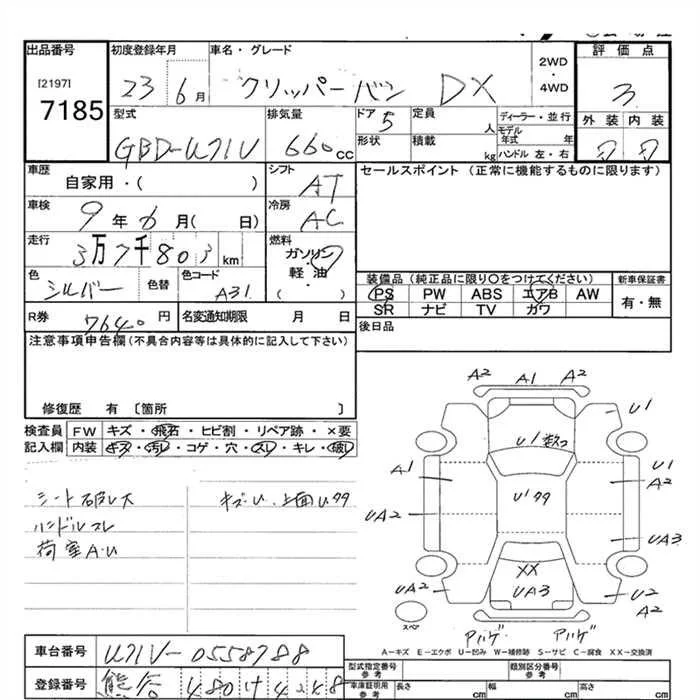 出品番号 初度登録年月 車名・グレード
[2197]
7185
23 6月 クリッパーバン DX
2WD
・
4WD
評価点
3
外装 内装
型式 排気量 ドア 定員 ディーラー・並行
GBD-U71V 660cc 5 人
モデル年式 年
形状 積載 kg ハンドル 左・右
車歴 シフト セールスポイント (正常に機能するものに限ります)
自家用・( ) AT
車検 冷房
9年6月( 日) AC
走行 燃料
3万7千803km ガソリン・軽油・( )
色 色替 色コード
シルバー A31
装備品 (純正品に限り〇をつけてください) 新車保証書
PS PW ABS エアB AW 有・無
SR ナビ TV カワ
R券 7640円 名変通知期限 月 日
後日品
注意事項申告欄(不具合内容等は具体的に記入して下さい)
修復歴 有 〔箇所 〕
検査員記入欄 FW キズ・飛石・ヒビ割・リペア跡・×要
内装 キズ・汚レ・コゲ・穴・スレ・キレ・破レ
シート破レ大
ハンドルスレ
荷室A.U
キズ・U
A2 A1 A2
U1
A1
U1
A2
UA2
UA3
XX
UA3
UA2
U2
A2
スペア
A=キズ E=エクボ U=凹み W=補修跡 S=サビ C=腐食 XX=交換済
車台番号 U71V-0558788
型式指定番号 類別区分番号
参考 参考
登録番号 熊谷 480 け 4248
車庫証明用参考 長さ cm 幅 cm 高さ cm